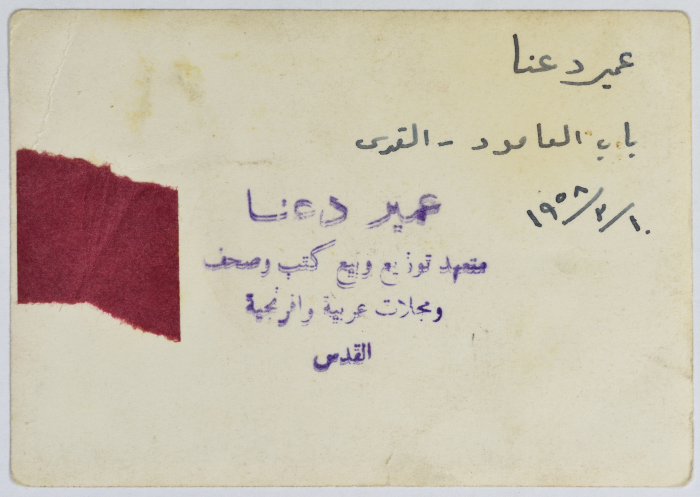 عمير دعنا
باب العامود - القدس
١٩٥٨/٢/١٠
عمير دعنا
متعهد توزيع وبيع كتب وصحف
ومجلات عربية وافرنجية
القدس